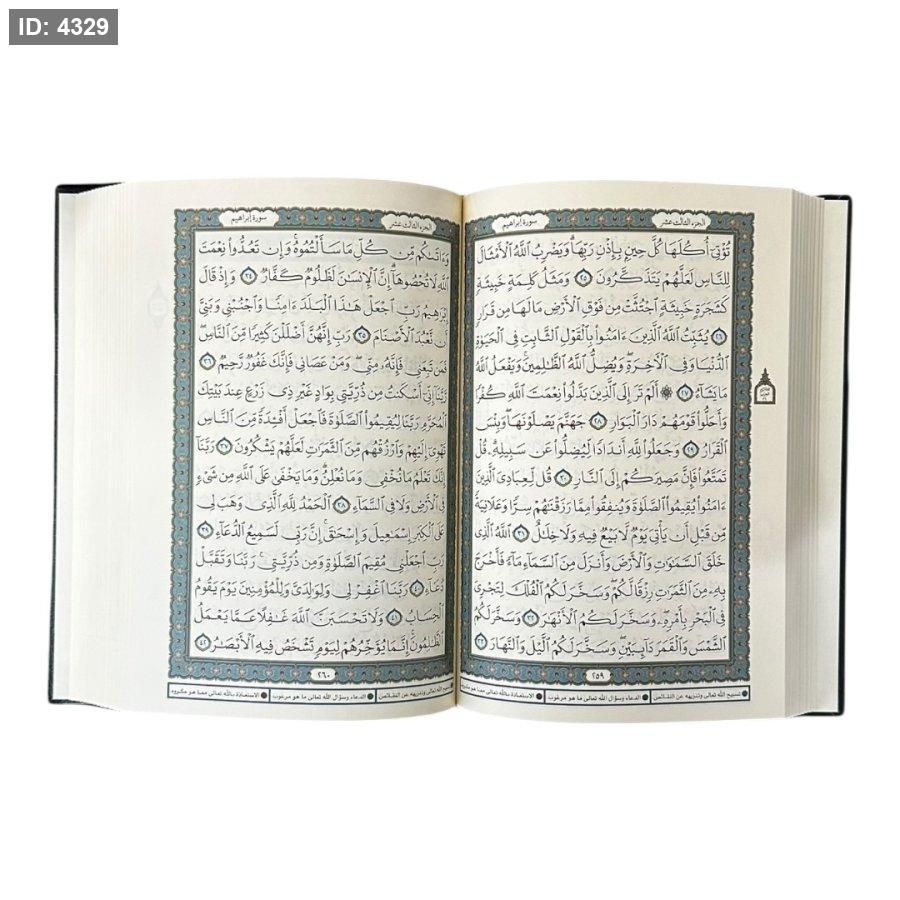 ID: 4329
الجزء الثالث عشر
سورة إبراهيم
تُؤْتِىٓ أُكُلَهَا كُلَّ حِينٍۭ بِإِذْنِ رَبِّهَا ۗ وَيَضْرِبُ ٱللَّهُ ٱلْأَمْثَالَ
لِلنَّاسِ لَعَلَّهُمْ يَتَذَكَّرُونَ ٢٥ وَمَثَلُ كَلِمَةٍ خَبِيثَةٍ
كَشَجَرَةٍ خَبِيثَةٍ ٱجْتُثَّتْ مِن فَوْقِ ٱلْأَرْضِ مَا لَهَا مِن قَرَارٍ
٢٦ يُثَبِّتُ ٱللَّهُ ٱلَّذِينَ ءَامَنُوا۟ بِٱلْقَوْلِ ٱلثَّابِتِ فِى ٱلْحَيَوٰةِ
ٱلدُّنْيَا وَفِى ٱلْأَخِرَةِ ۖ وَيُضِلُّ ٱللَّهُ ٱلظَّٰلِمِينَ ۚ وَيَفْعَلُ ٱللَّهُ
مَا يَشَآءُ ٢٧ ۞ أَلَمْ تَرَ إِلَى ٱلَّذِينَ بَدَّلُوا۟ نِعْمَتَ ٱللَّهِ كُفْرًا
وَأَحَلُّوا۟ قَوْمَهُمْ دَارَ ٱلْبَوَارِ ٢٨ جَهَنَّمَ يَصْلَوْنَهَا ۖ وَبِئْسَ
ٱلْقَرَارُ ٢٩ وَجَعَلُوا۟ لِلَّهِ أَندَادًا لِّيُضِلُّوا۟ عَن سَبِيلِهِۦ ۗ قُلْ
تَمَتَّعُوا۟ فَإِنَّ مَصِيرَكُمْ إِلَى ٱلنَّارِ ٣٠ قُل لِّعِبَادِىَ ٱلَّذِينَ
ءَامَنُوا۟ يُقِيمُوا۟ ٱلصَّلَوٰةَ وَيُنفِقُوا۟ مِمَّا رَزَقْنَٰهُمْ سِرًّا وَعَلَانِيَةً
مِّن قَبْلِ أَن يَأْتِىَ يَوْمٌ لَّا بَيْعٌ فِيهِ وَلَا خِلَٰلٌ ٣١ ٱللَّهُ ٱلَّذِى
خَلَقَ ٱلسَّمَٰوَٰتِ وَٱلْأَرْضَ وَأَنزَلَ مِنَ ٱلسَّمَآءِ مَآءً فَأَخْرَجَ
بِهِۦ مِنَ ٱلثَّمَرَٰتِ رِزْقًا لَّكُمْ ۖ وَسَخَّرَ لَكُمُ ٱلْفُلْكَ لِتَجْرِىَ
فِى ٱلْبَحْرِ بِأَمْرِهِۦ ۖ وَسَخَّرَ لَكُمُ ٱلْأَنْهَٰرَ ٣٢ وَسَخَّرَ لَكُمُ
ٱلشَّمْسَ وَٱلْقَمَرَ دَآئِبَيْنِ ۖ وَسَخَّرَ لَكُمُ ٱلَّيْلَ وَٱلنَّهَارَ ٣٣
٢٥٩
تسبيح الله تعالى وتنزيهه عن النقائص ● الدعاء وسؤال الله تعالى ما هو مرغوب ● الاستعاذة بالله تعالى مما هو
الجزء الثالث عشر
سورة إبراهيم
وَءَاتَىٰكُم مِّن كُلِّ مَا سَأَلْتُمُوهُ ۚ وَإِن تَعُدُّوا۟ نِعْمَتَ
ٱللَّهِ لَا تُحْصُوهَآ ۗ إِنَّ ٱلْإِنسَٰنَ لَظَلُومٌ كَفَّارٌ ٣٤ وَإِذْ قَالَ
إِبْرَٰهِيمُ رَبِّ ٱجْعَلْ هَٰذَا ٱلْبَلَدَ ءَامِنًا وَٱجْنُبْنِى وَبَنِىَّ
أَن نَّعْبُدَ ٱلْأَصْنَامَ ٣٥ رَبِّ إِنَّهُنَّ أَضْلَلْنَ كَثِيرًا مِّنَ ٱلنَّاسِ ۖ
فَمَن تَبِعَنِى فَإِنَّهُۥ مِنِّى ۖ وَمَنْ عَصَانِى فَإِنَّكَ غَفُورٌ رَّحِيمٌ ٣٦
رَّبَّنَآ إِنِّىٓ أَسْكَنتُ مِن ذُرِّيَّتِى بِوَادٍ غَيْرِ ذِى زَرْعٍ عِندَ بَيْتِكَ
ٱلْمُحَرَّمِ رَبَّنَا لِيُقِيمُوا۟ ٱلصَّلَوٰةَ فَٱجْعَلْ أَفْـِٔدَةً مِّنَ ٱلنَّاسِ
تَهْوِىٓ إِلَيْهِمْ وَٱرْزُقْهُم مِّنَ ٱلثَّمَرَٰتِ لَعَلَّهُمْ يَشْكُرُونَ ٣٧ رَبَّنَآ
إِنَّكَ تَعْلَمُ مَا نُخْفِى وَمَا نُعْلِنُ ۗ وَمَا يَخْفَىٰ عَلَى ٱللَّهِ مِن شَىْءٍ
فِى ٱلْأَرْضِ وَلَا فِى ٱلسَّمَآءِ ٣٨ ٱلْحَمْدُ لِلَّهِ ٱلَّذِى وَهَبَ لِى
عَلَى ٱلْكِبَرِ إِسْمَٰعِيلَ وَإِسْحَٰقَ ۚ إِنَّ رَبِّى لَسَمِيعُ ٱلدُّعَآءِ ٣٩
رَبِّ ٱجْعَلْنِى مُقِيمَ ٱلصَّلَوٰةِ وَمِن ذُرِّيَّتِى ۚ رَبَّنَا وَتَقَبَّلْ
دُعَآءِ ٤٠ رَبَّنَا ٱغْفِرْ لِى وَلِوَٰلِدَىَّ وَلِلْمُؤْمِنِينَ يَوْمَ يَقُومُ
ٱلْحِسَابُ ٤١ وَلَا تَحْسَبَنَّ ٱللَّهَ غَٰفِلًا عَمَّا يَعْمَلُ
ٱلظَّٰلِمُونَ ۚ إِنَّمَا يُؤَخِّرُهُمْ لِيَوْمٍ تَشْخَصُ فِيهِ ٱلْأَبْصَٰرُ ٤٢
٢٦٠
تسبيح الله تعالى وتنزيهه عن النقائص ● الدعاء وسؤال الله تعالى ما هو مرغوب ● الاستعاذة بالله تعالى مما هو مكروه